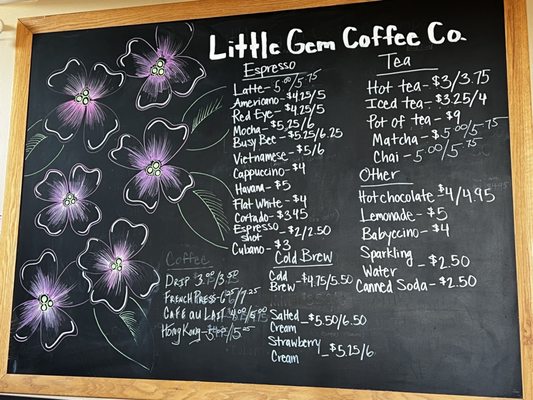 Little Gem Coffee Co.
Espresso
Latte - 5.00/5.75
Americano - $4.25/5
Red Eye - $4.25/5
Mocha - $5.25/6
Busy Bee - $5.25/6.25
Vietnamese - $5/6
Cappuccino - $4
Havana - $5
Flat White - $4
Cortado - $3.45
Espresso shot - $2/2.50
Cubano - $3
Tea
Hot tea - $3/3.75
Iced tea - $3.25/4
Pot of tea - $9
Matcha - $5.00/5.75
Chai - 5.00/5.75
Other
Hot chocolate - $4/4.95
Lemonade - $5
Babyccino - $4
Sparkling Water - $2.50
Canned Soda - $2.50
Coffee
Drip $3.00/3.50
French Press - 6.25/7.25
Café au Lait $4.00/5.00
Hong Kong - $4.00/5.05
Cold Brew
Cold Brew - $4.75/5.50
Salted Cream - $5.50/6.50
Strawberry Cream - $5.25/6